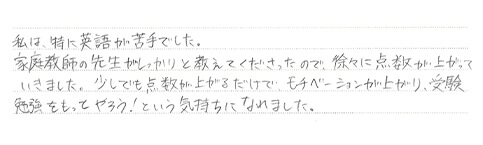 私は、特に英語が苦手でした。
家庭教師の先生がしっかりと教えてくださったので、徐々に点数が上がって
いきました。少しでも点数が上がるだけで、モチベーションが上がり、受験
勉強をもっとやろう！という気持ちになれました。